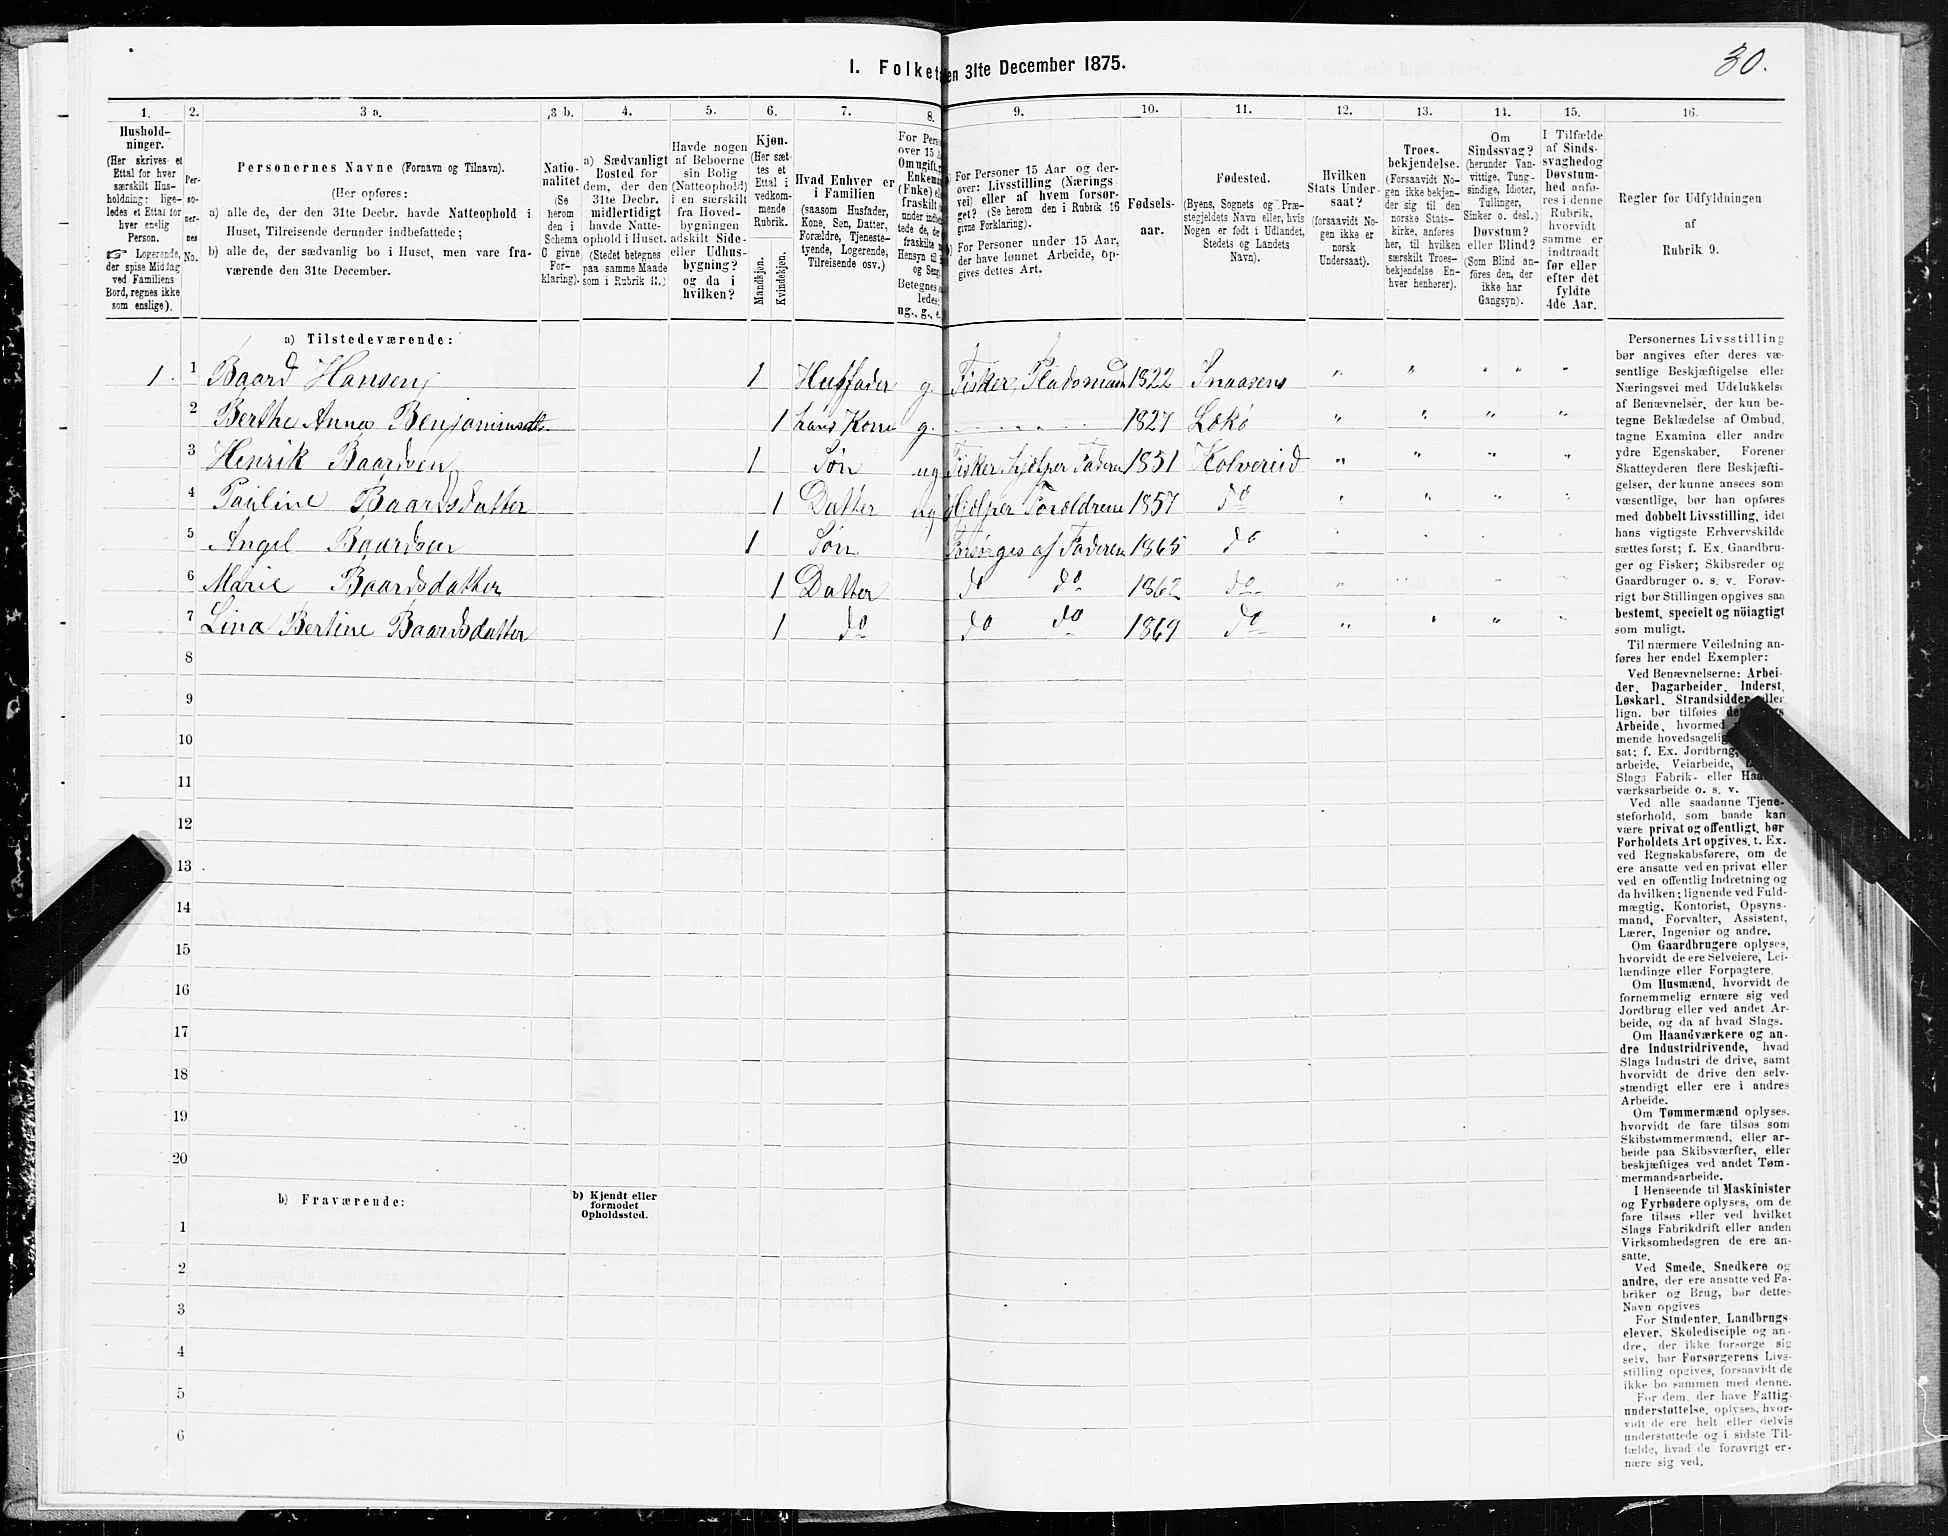 30.
I. Folket
en 31te December 1875.
1. 2. 3 a. 3 b. 4. 5. 6. 7. 8. 9. 10. 11. 12. 13. 14. 15. 16.
Hushold-
ninger.
(Her skrives et
Ettal for hver
særskilt Hus-
holdning; lige-
ledes et Ettal for
hver enslig
Person.
☞ Logerende,
der spise Middag
ved Familiens
Bord, regnes ikke
som enslige).
Per-
so-
ner-
nes
No.
Personernes Navne (Fornavn og Tilnavn).
(Her opføres:
a) alle de, der den 31te Decbr. havde Natteophold i
Huset, Tilreisende derunder indbefattede;
b) alle de, der sædvanlig bo i Huset, men vare fra-
værende den 31te December.
Natio-
nalitet
(Se
herom
den i
Schema
C givne
For-
klaring).
a) Sædvanligt
Bosted for
dem, der den
31te Decbr.
midlertidigt
havde Natte-
ophold i Huset.
(Stedet betegnes
paa samme Maade
som i Rubrik 11.)
Havde nogen
af Beboerne
sin Bolig
(Natteophold)
i en særskilt
fra Hoved-
bygningen
adskilt Side-
eller Udhus-
bygning?
og da i
hvilken?
Kjøn.
(Her sæt-
tes et
Ettal i
vedkom-
mende
Rubrik.
Mandkjøn.
Kvindekjøn.
Hvad Enhver er
i Familien
(saasom Husfader,
Kone, Søn, Datter,
Forældre, Tjeneste-
tyende, Logerende,
Tilreisende osv.)
For Pers
over 15 A
Om ugift,
Enkem
(Fnke) e
fraskilt
under indbe
tede de, d
fraskilte
Hensyn til
og Seng
Betegnes s
ledes:
ug., g., e.
a) For Personer 15 Aar og der-
over: Livsstilling (Nærings
vei) eller af hvem forsør-
get? (Se herom den i Rubrik 16
givne Forklaring).
b) For Personer under 15 Aar,
der have lønnet Arbeide, op-
gives dettes Art.
Fødsels-
aar.
Fødested.
(Byens, Sognets og Præ-
stegjeldets Navn eller, hvis
Nogen er født i Udlandet,
Stedets og Landets
Navn).
Hvilken
Stats Under-
saat?
(forsaavidt No-
gen ikke er
norsk
Undersaat).
Troes-
bekjendelse.
(Forsaavidt No-
gen ikke bekjen-
der sig til den
norske Stats-
kirke, anføres
her, til hvilken
særskilt Troes-
bekjendelse En-
hver henhører).
Om
Sindssvag?
(herunder Van-
vittige, Tung-
sindige, Idioter,
Tullinger,
Sinker o. desl.)
Døvstum?
eller Blind?
(Som Blind an-
føres den, der
ikke har
Gangsyn).
I Tilfælde
af Sinds-
svaghed og
Døvstum-
hed anfø-
res i denne
Rubrik,
hvorvidt
samme er
indtraadt
før eller
efter det
fyldte
4de Aar.
Regler for Udfyldningen
af
Rubrik 9.
a) Tilstedeværende:
1. 1 Baard Hansen 1 Husfader g. Fisker, Pladsmand 1822 Snaasens " " " " "
2 Berthe Anna Benjaminsdtr. 1 hans Kone g. 1827 Lekø " " " "
3 Henrik Baardsen 1 Søn ug Fisker hjelper Faderen 1851 Kolvereid " " " "
4 Pauline Baardsdatter 1 Datter ug Hjelper Forældrene 1857 do " " " "
5 Angel Baardsen 1 Søn Forsørges af Faderen 1865 do " " " "
6 Marie Baardsdatter 1 Datter do do 1862 do " " " "
7 Lina Bertine Baardsdatter 1 do do do 1869 do " " " "
8
9
10
11
12
13
14
15
16
17
18
19
20
b) Fraværende:
b) Kjendt eller
formodet
Opholdssted.
1
2
3
4
5
6
Personernes Livsstilling
bør angives efter deres væ-
sentlige Beskjæftigelse eller
Næringsvei med Udelukkelse
af Benævnelser, der kun be-
tegne Beklædelse af Ombud,
tagne Examina eller andre
ydre Egenskaber. Forener
Skatteyderen flere Beskjæfti-
gelser, der kunne ansees som
væsentlige, bør han opføres
med dobbelt Livsstilling, idet
hans vigtigste Erhvervskilde
sættes først; f. Ex. Gaardbru-
ger og Fisker; Skibsreder og
Gaardbruger o. s. v. Forøv-
rigt bør Stillingen opgives saa
bestemt, specielt og nöiagtigt
som muligt.
Til nærmere Veiledning an-
føres her endel Exempler:
Ved Benævnelserne: Arbei-
der, Dagarbeider, Inderst,
Løskarl, Strandsidder eller
lign. bør tilføies
Arbeide, hvormed
mende hovedsagelig
sat; f. Ex. Jordbrug,
arbeide, Veiarbeide,
Slags Fabrik- eller
værksarbeide o. s. v.
Ved alle saadanne Tjene-
steforhold, som baade kan
være privat og offentligt, bør
Forholdets Art opgives, t. Ex.
ved Regnskabsførere, om de
ere ansatte ved en privat eller
ved en offentlig Indretning og
da hvilken; lignende ved Fuld-
mægtig, Kontorist, Opsyns-
mand, Forvalter, Assistent,
Lærer, Ingeniør og andre.
Om Gaardbrugere oplyses,
hvorvidt de ere Selveiere, Lei-
lændinge eller Forpagtere.
Om Husmænd, hvorvidt de
fornemmelig ernære sig ved
Jordbrug eller ved andet Ar-
beide, og da af hvad Slags.
Om Haandværkere og an-
dre Industridrivende, hvad
Slags Industri de drive, samt
hvorvidt de drive den selv-
stændigt eller ere i andres
Arbeide.
Om Tømmermænd oplyses,
hvorvidt de fare tilsøs som
Skibstømmermænd, eller ar-
beide paa Skibsværfter, eller
beskjæftiges ved andet Tøm-
mermandsarbeide.
I Henseende til Maskinister
og Fyrbødere oplyses, om de
fare tilsøs eller ved hvilket
Slags Fabrikdrift eller anden
Virksomhedsgren de ere an-
satte.
Ved Smede, Snedkere og
andre, der ere ansatte ved Fa-
briker og Brug, bør dettes
Navn opgives
For Studenter, Landbrugs-
elever, Skoledisciple og an-
dre, der ikke forsørge sig
selv, bør Forsørgerens Livs-
stilling opgives, forsaavidt de
ikke bo sammen med denne.
For dem, der have Fattig-
understøttelse, oplyses, hvor-
vidt de ere helt eller delvis
understøttede og i sidste Til-
fælde, hvad de forøvrigt er-
nære sig ved.